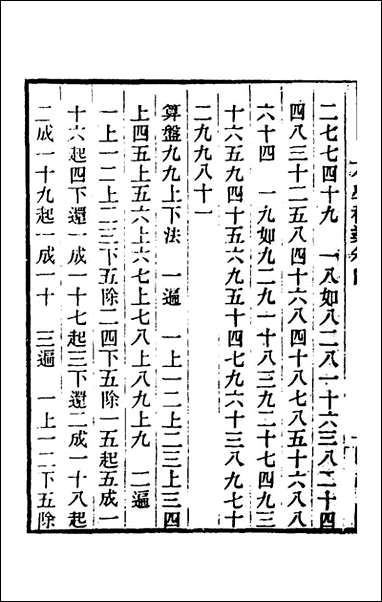 二七七四十九　一八如八二八一十六三八二十四
四八三十二五八四十六八四十八七八五十六八八
六十四　一九如九二九一十八三九二十七四九三
十六五九四十五六九五十四七九六十三八九七十
二九九八十一
算盤九九上下法　一遍　一上一二上二三上三四
上四五上五六上六七上七八上八九上九　二遍
一上一二上二三下五除二四下五除一五起五成一
十六起四下還一成一十七起三下還二成一十八起
二成一十九起一成一十　三遍　一上一二下五除